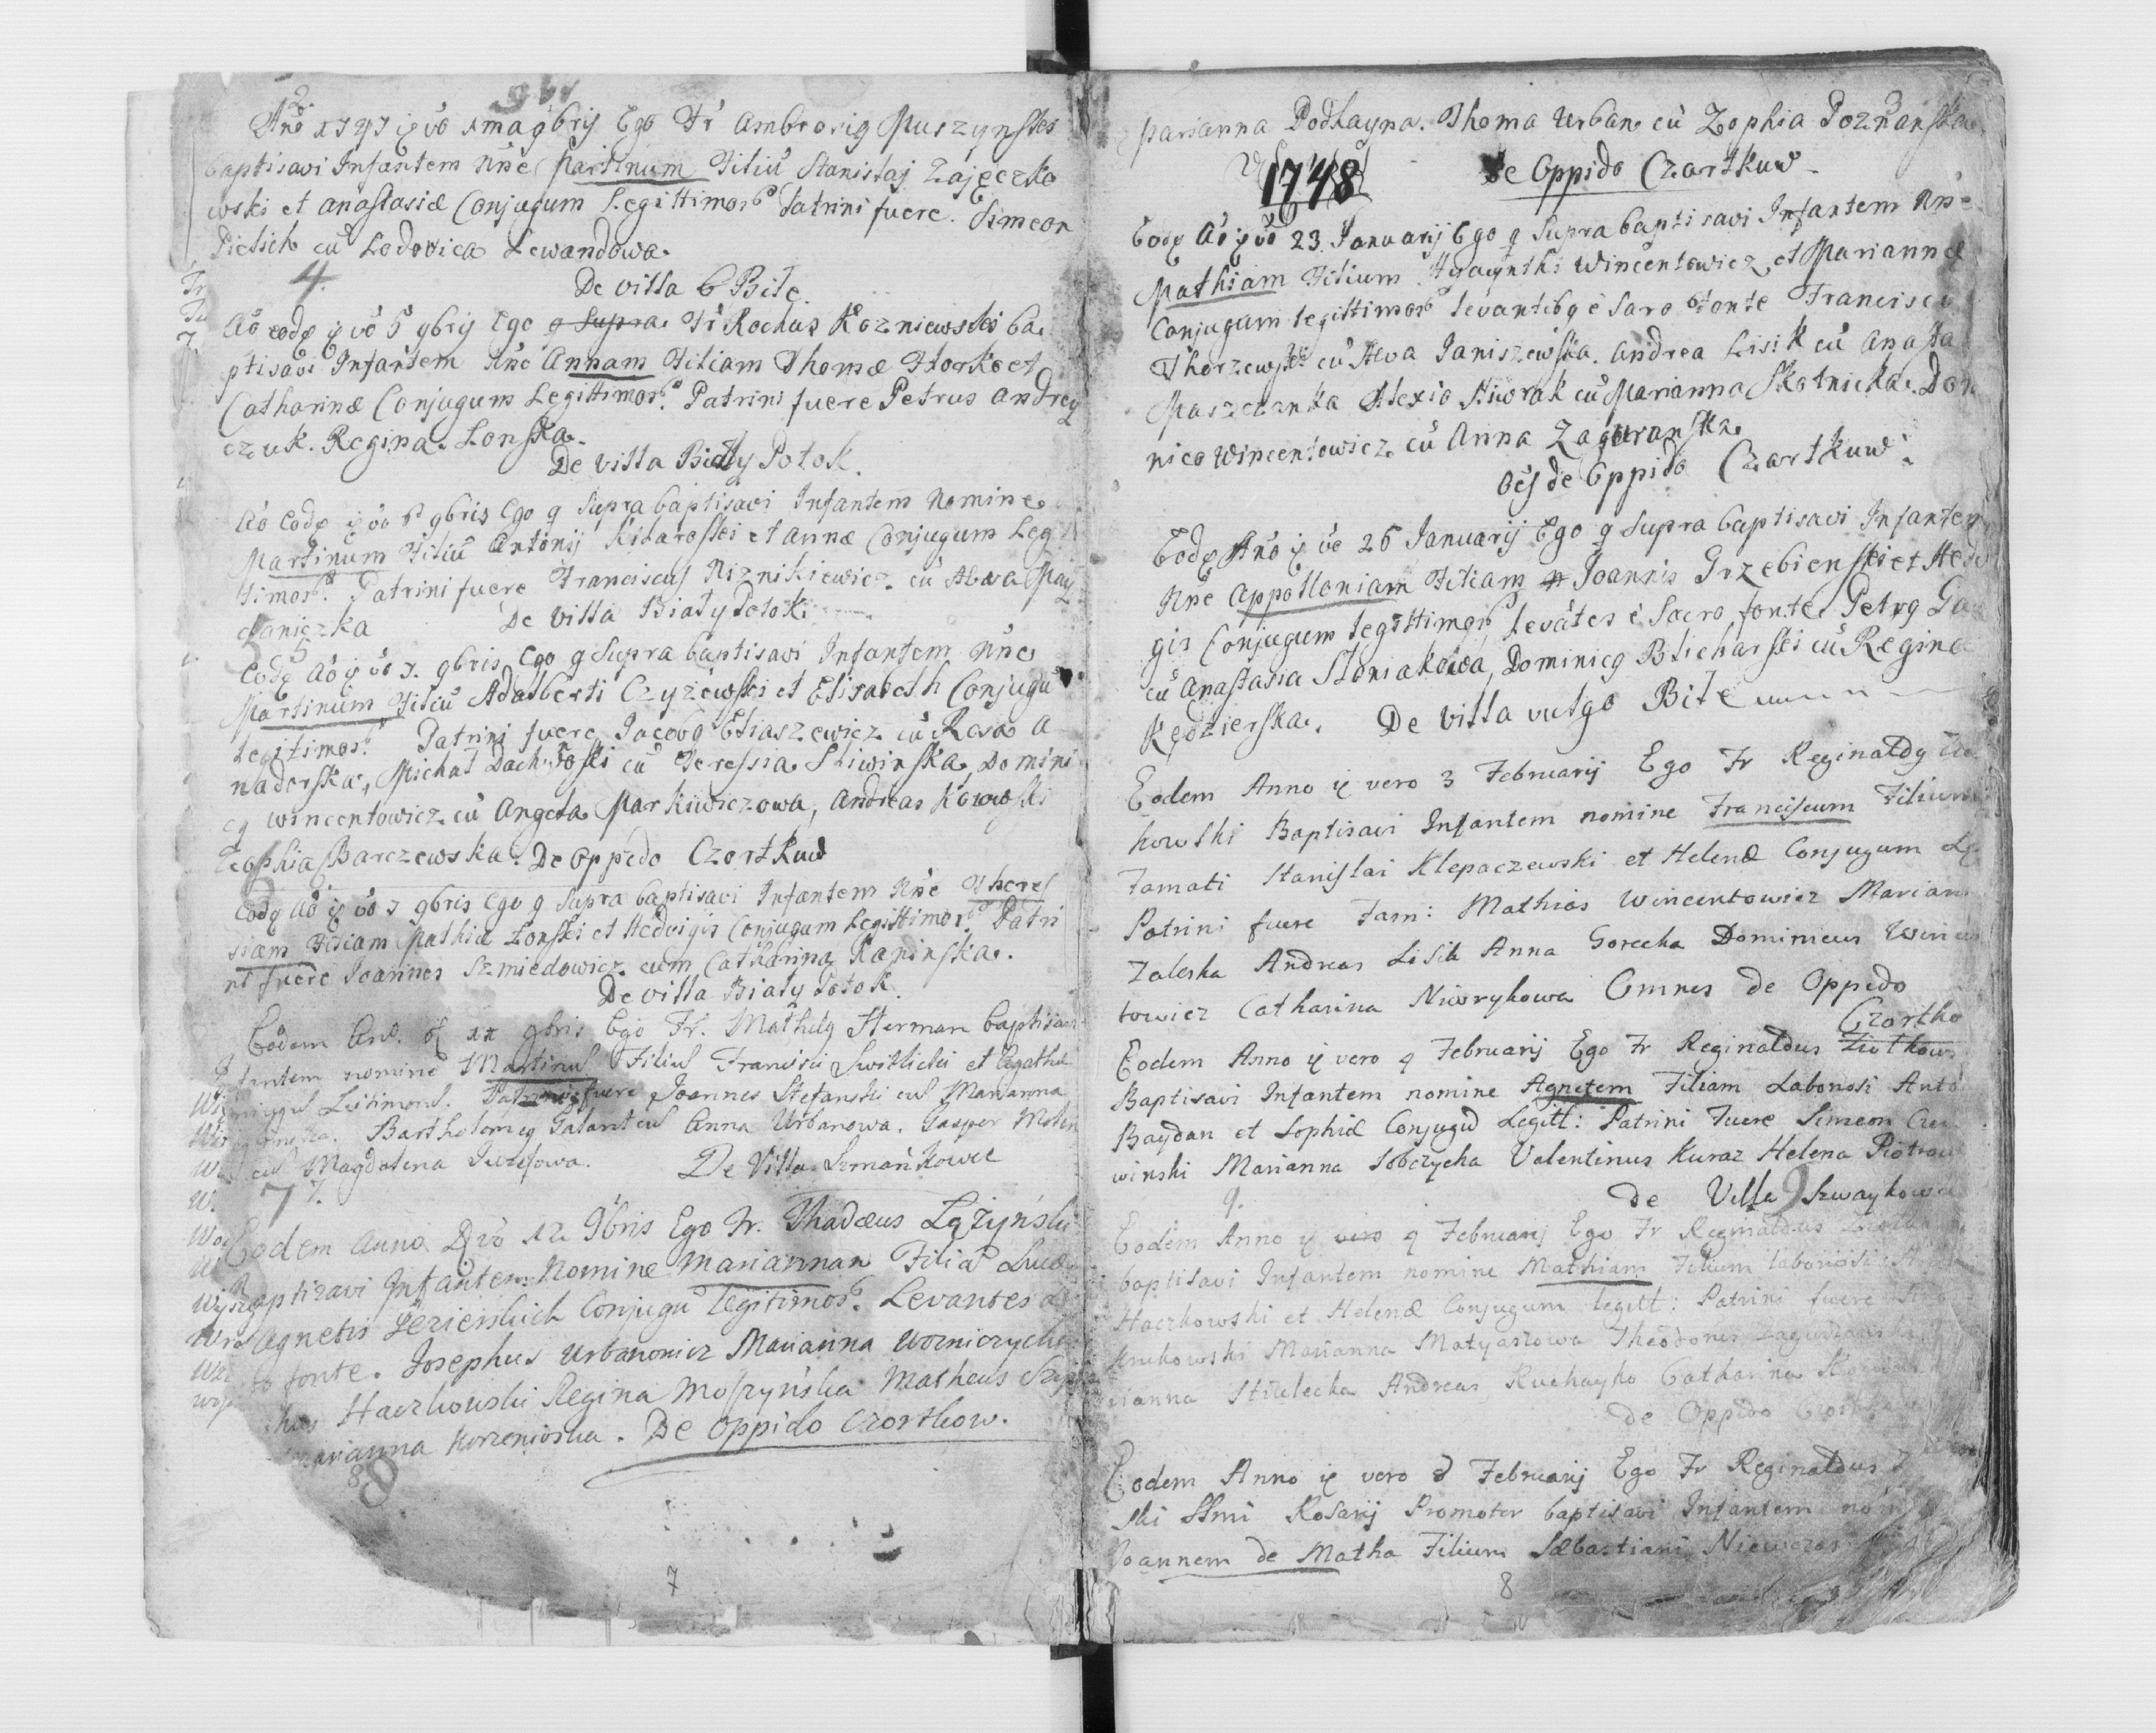 Ano 1747 ip vo 1ma 9bris Ego Fr Ambrosig Muszynski
baptisavi Infantem Nne Martinum Filiu Stanislaj Zajęczko
wski et Anastasiæ Conjugum Legittimor. Patrini fuere. Simeon
Pietsich cu Lodovica Lewandowa.
4.
De villa Bite
Ao eodg ip vo 5 9bris Ego q supra Fr Rochus Kozniewski ba
ptisavi Infantem Nne Annam Filiam Thomæ Horko et
Catharinæ Conjugum Legittimor. Patrini fuere Petrus Andrey
czuk. Regina Lonska.
De villa Biały Potok.
Ao Eodg ip vo 6 9bris Ego q supra baptisavi Infantem Nomine
Martinum Filiu Antonij Kitaroski et Annæ Conjugum Leg
timor. Patrini fuere Franciscus Niznikiewicz cu Hewa
daniczka De villa Biały Potok
5
Eodg Ao ip vo 7. 9bris Ego q supra baptisavi Infantem Nne
Martinum Filiu Adalberti Czyżewski et Elisabeth Conjugu
Legitimor. Patrini fuere Jacobg Eliaszewicz cu Rosa A
nadorska, Michał Dachnoski cu Teressia Sliwinska, Domini
cg Wincentowicz cu Angela Markiewiczowa, Andreas Kozowski
Zophia Barczewska. De Oppido Czortkuw
Eodg Ao ip vo 7 9bris Ego q supra baptisavi Infantem Nne Theres
siam Filiam Mathiæ Lonski et Hedvigis Conjugum Legittimor. Patri
ni fuere Joannes Szmiedowicz cum Catharina Kaninska.
De villa Biały Potok
Eodem An. 11 9bris Ego Fr. Matheg Herman baptisavi
Infantem nomine Martinu Filiu Francisci Switlicki et Agathæ
Patrini fuere Joannes Stefanski cu Marianna
Bartholomeg Galant cu Anna Urbanowa. Gasper Molen
cu Magdalena Juzefowa. De Villa Szmańkowce
7 7.
Eodem Anno D vo 12 9bris Ego Fr. Thadæus Łążyński
Baptizavi Infantem Nomine Mariannan Filia Lucæ
Agnetis Lezierskich Conjugu legitimor. Levantes de
fonte. Josephus Urbanowicz Marianna Wozniczycha
Haczkowski Regina Moszyńska Matheus
Marianna Korzenioska. De Oppido Czortkow.
8
7
Marianna Podhayna. Thoma Urban cu Zophia Poznanska
1748 De Oppido Czartkuw
Eodg Ao ip vo 23 Januarij Ego q supra baptisavi Infantem Nne
Mathiam Filium Hyacynthi Wincentowicz et Mariannæ
Conjugum legittimor levantibg è Saro Fonte Francisco
Thorzewski cu Hewa Janiszewska. Andrea Lisik cu Anasta
Maszczanka Alexio Niwrak cu Marianna Skotnicka. Do
nico Wincentowicz cu Anna Zaguranska
Oes de Oppido Czartkuw.
Eodg Ano ip vo 26 Januarij Ego q supra baptisavi Infantem
Nne Appolloniam Filiam Joannis Grzebienski et Hedvi
gis Conjugum legittimor levates è Sacro fonte Petrg Ga
cu Anastasia Słoniakowa, Dominicg Blicharski cu Regina
Kędzierska. De villa vulgo Bite
Eodem Anno ip vero 3 Februarij Ego Fr Reginaldg Zio
kowski Baptisavi Infantem nomine Franciscum Filium
Famati Stanislai Klepaczewski et Helenæ Conjugum Le
Patrini fuere Fam: Mathias Wincentowicz Marian
Zaleska Andreas Lisik Anna Gorecka Dominicus Wincen
towicz Catharina Niwrykowa Omnes de Oppido
Czortko
Eodem Anno ip vero 4 Februarij Ego Fr Reginaldus Ziołkow
Baptisavi Infantem nomine Agnetem Filiam Laboriosi Anto
Baydan et Sophiæ Conjugu Legitt: Patrini Fuere Simeon
winski Marianna Sobczycha Valentinus Kuraz Helena Piotrow
9. de Villa Szwaykow
Eodem Anno ip vero 4 Februarij Ego Fr Reginaldus
baptisavi Infantem nomine Mathiam Filium laboriosi
Haczkowski et Helenæ Conjugum legitt: Patrini fuere
Krukowski Marianna Matyaszowa Theodorus
rianna Strzelecka Andreas Kuchayko Catharina
de Oppido
Eodem Anno ip vero 8 Februarij Ego Fr Reginaldus
ski SSmi Rosarij Promotor baptisavi Infantem nom
Joannem de Matha Filium Sæbastiani
8